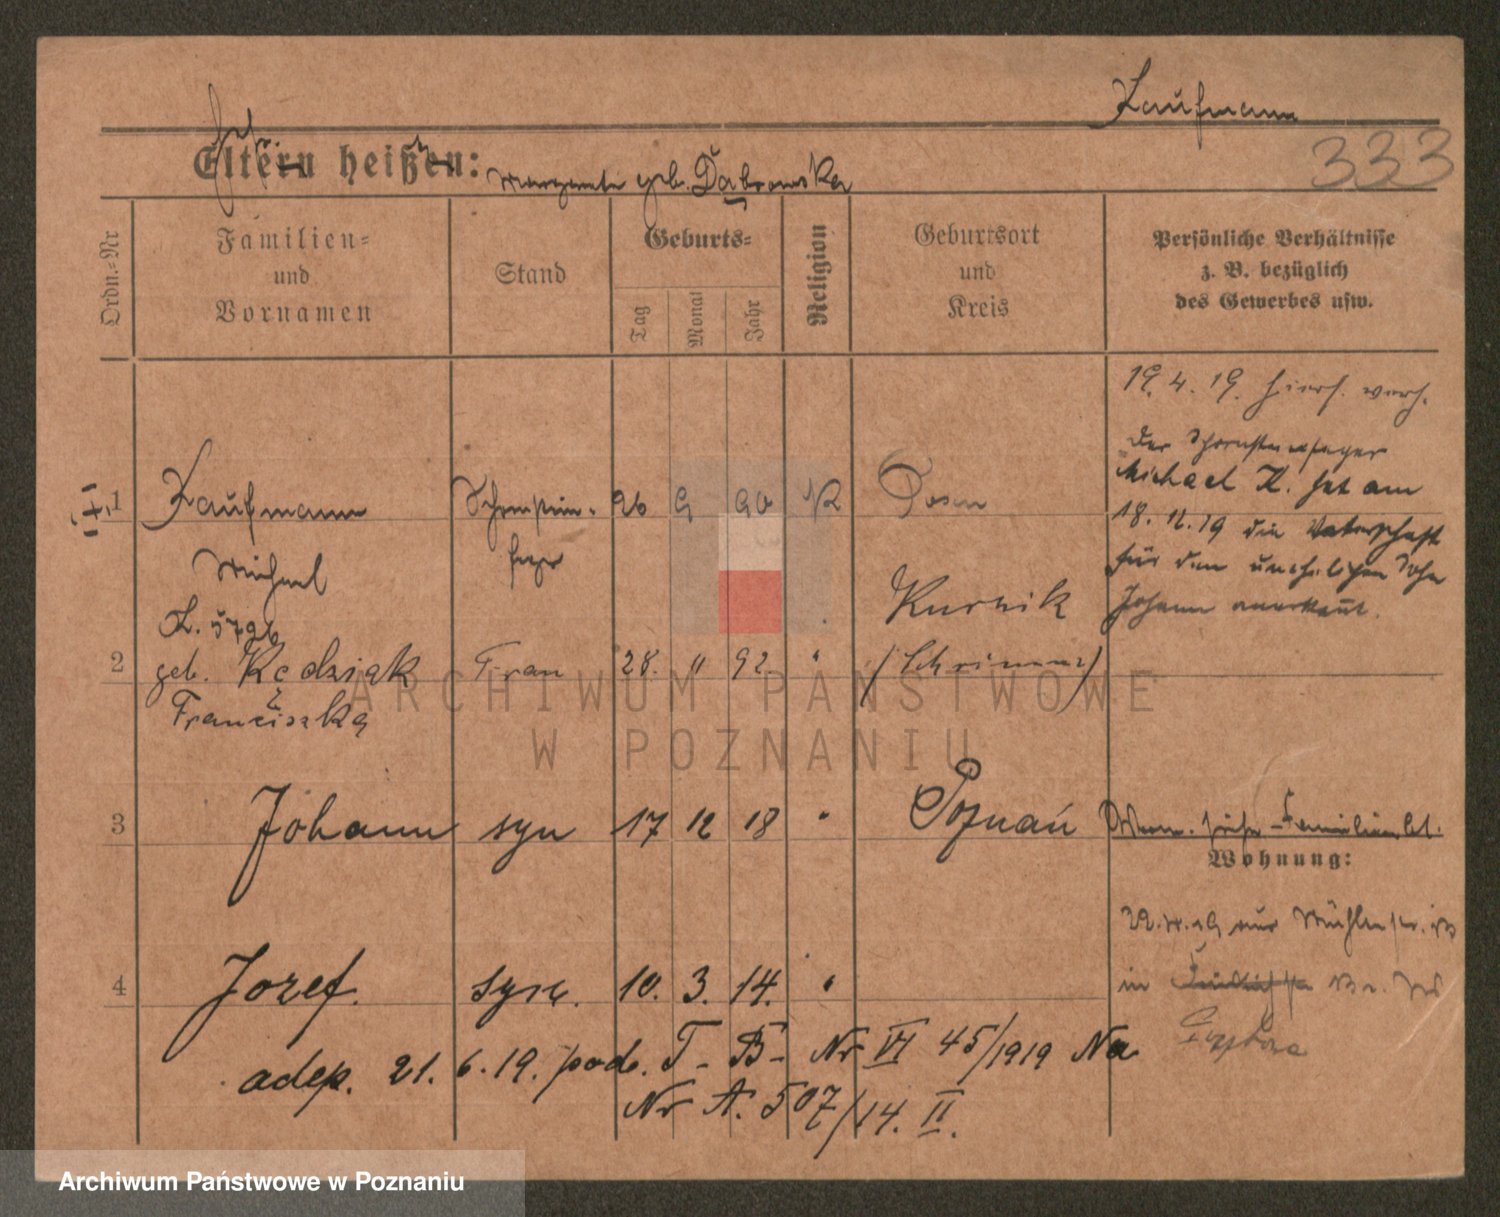 Kaufmann
333
Eltern heißen:
Margarete geb. Dąbrowska
Ordn.-Nr
Familien-
und
Vornamen
Stand
Geburts-
Tag
Monat
Jahr
Religion
Geburtsort
und
Kreis
Persönliche Verhältnisse
z. B. bezüglich
des Gewerbes usw.
19. 4. 19. hiers. verh.
Der Schornsteinfeger
Michael K. hat am
18. 12. 19 die Vaterschaft
für den unehelichen Sohn
Johann anerkannt.
1 Kaufmann Schornstein- 26 9 90 K Posen
Michael feger
K. 5796
2 geb. Kędziak Frau 28. " 92 " Kurnik
Franciszka (Schrimm)
3 Johann syn 17 12 18 " Poznań
Wohnung:
4 Jozef. syn. 10. 3. 14. "
22. 19 Mühlenstr.
in
adop. 21. 6. 19. pod. T- B- Nr VI 45/1919 Na
Nr A. 507/14. II.
ARCHIWUM PAŃSTWOWE
W POZNANIU
Archiwum Państwowe w Poznaniu